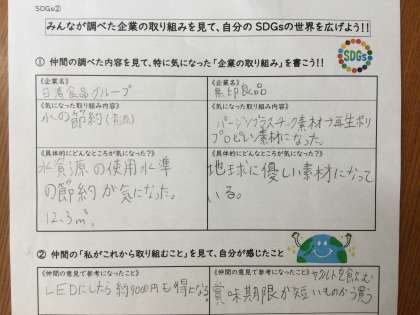 SDGs②
みんなが調べた企業の取り組みを見て、自分のSDGsの世界を広げよう!!
① 仲間の調べた内容を見て、特に気になった「企業の取り組み」を書こう!!
SDGs
《企業名》
日清食品グループ
《気になった取り組み内容》
水の節約
《具体的にどんなところが気になった？》
水資源の使用水準
の節約が気になった。
12.3m³。
《企業名》
無印良品
《気になった取り組み内容》
バージンプラスチック素材→再生ポリ
プロピレン素材になった。
《具体的にどんなところが気になった？》
地球に優しい素材になって
いる。
② 仲間の「私がこれから取り組むこと」を見て、自分が感じたこと
《仲間の意見で参考になったこと》
LEDにしたら約9000円も得になる
《仲間の意見で参考になったこと》ヤクルトを飲む
賞味期限が短いものから買う